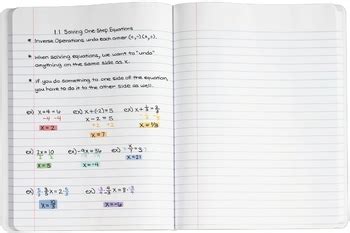 1.1 Solving One Step Equations
* Inverse Operations undo each other (+,-) (×,÷).
* When solving equations, we want to "undo"
anything on the same side as x.
* If you do something to one side of the equation,
you have to do it to the other side as well.
ex) x+4=6 ex) x+(-2)=5 ex)
-4 -4 x-2=5
x=2 +2 +2 x=1/3
x=7
ex) 2x=10 ex) -9x=36 ex)
x=5 x=-4 x=21
ex) ex)
x=-6